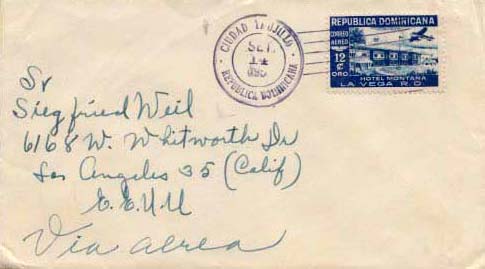 CIUDAD TRUJILLO
SET.
14
REPUBLICA DOMINICANA
REPUBLICA DOMINICANA
CORREO
AEREO
12
¢
ORO
HOTEL MONTANA
LA VEGA R.D.
Sr
Siegfried Weil
6168 W. Whitworth Dr
Los Angeles 35 (Calif)
E.E.U.U
Via aerea